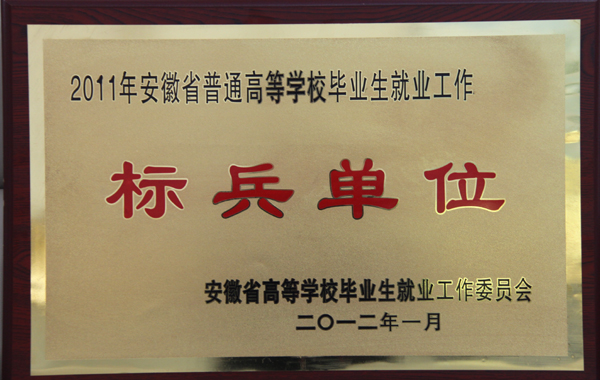 2011年安徽省普通高等学校毕业生就业工作
标兵单位
安徽省高等学校毕业生就业工作委员会
二〇一二年一月